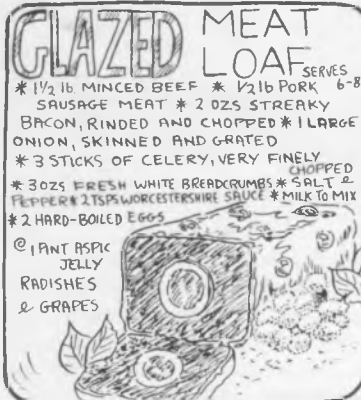 GLAZED MEAT
LOAF SERVES
* 1½ lb. MINCED BEEF * ½ lb PORK 6-8
SAUSAGE MEAT * 2 OZS STREAKY
BACON, RINDED AND CHOPPED * 1 LARGE
ONION, SKINNED AND GRATED
* 3 STICKS OF CELERY, VERY FINELY
CHOPPED
* 3 OZS FRESH WHITE BREADCRUMBS * SALT &
PEPPER * 2 TSPS WORCESTERSHIRE SAUCE * MILK TO MIX
* 2 HARD-BOILED EGGS
@ 1 PINT ASPIC
JELLY
RADISHES
& GRAPES